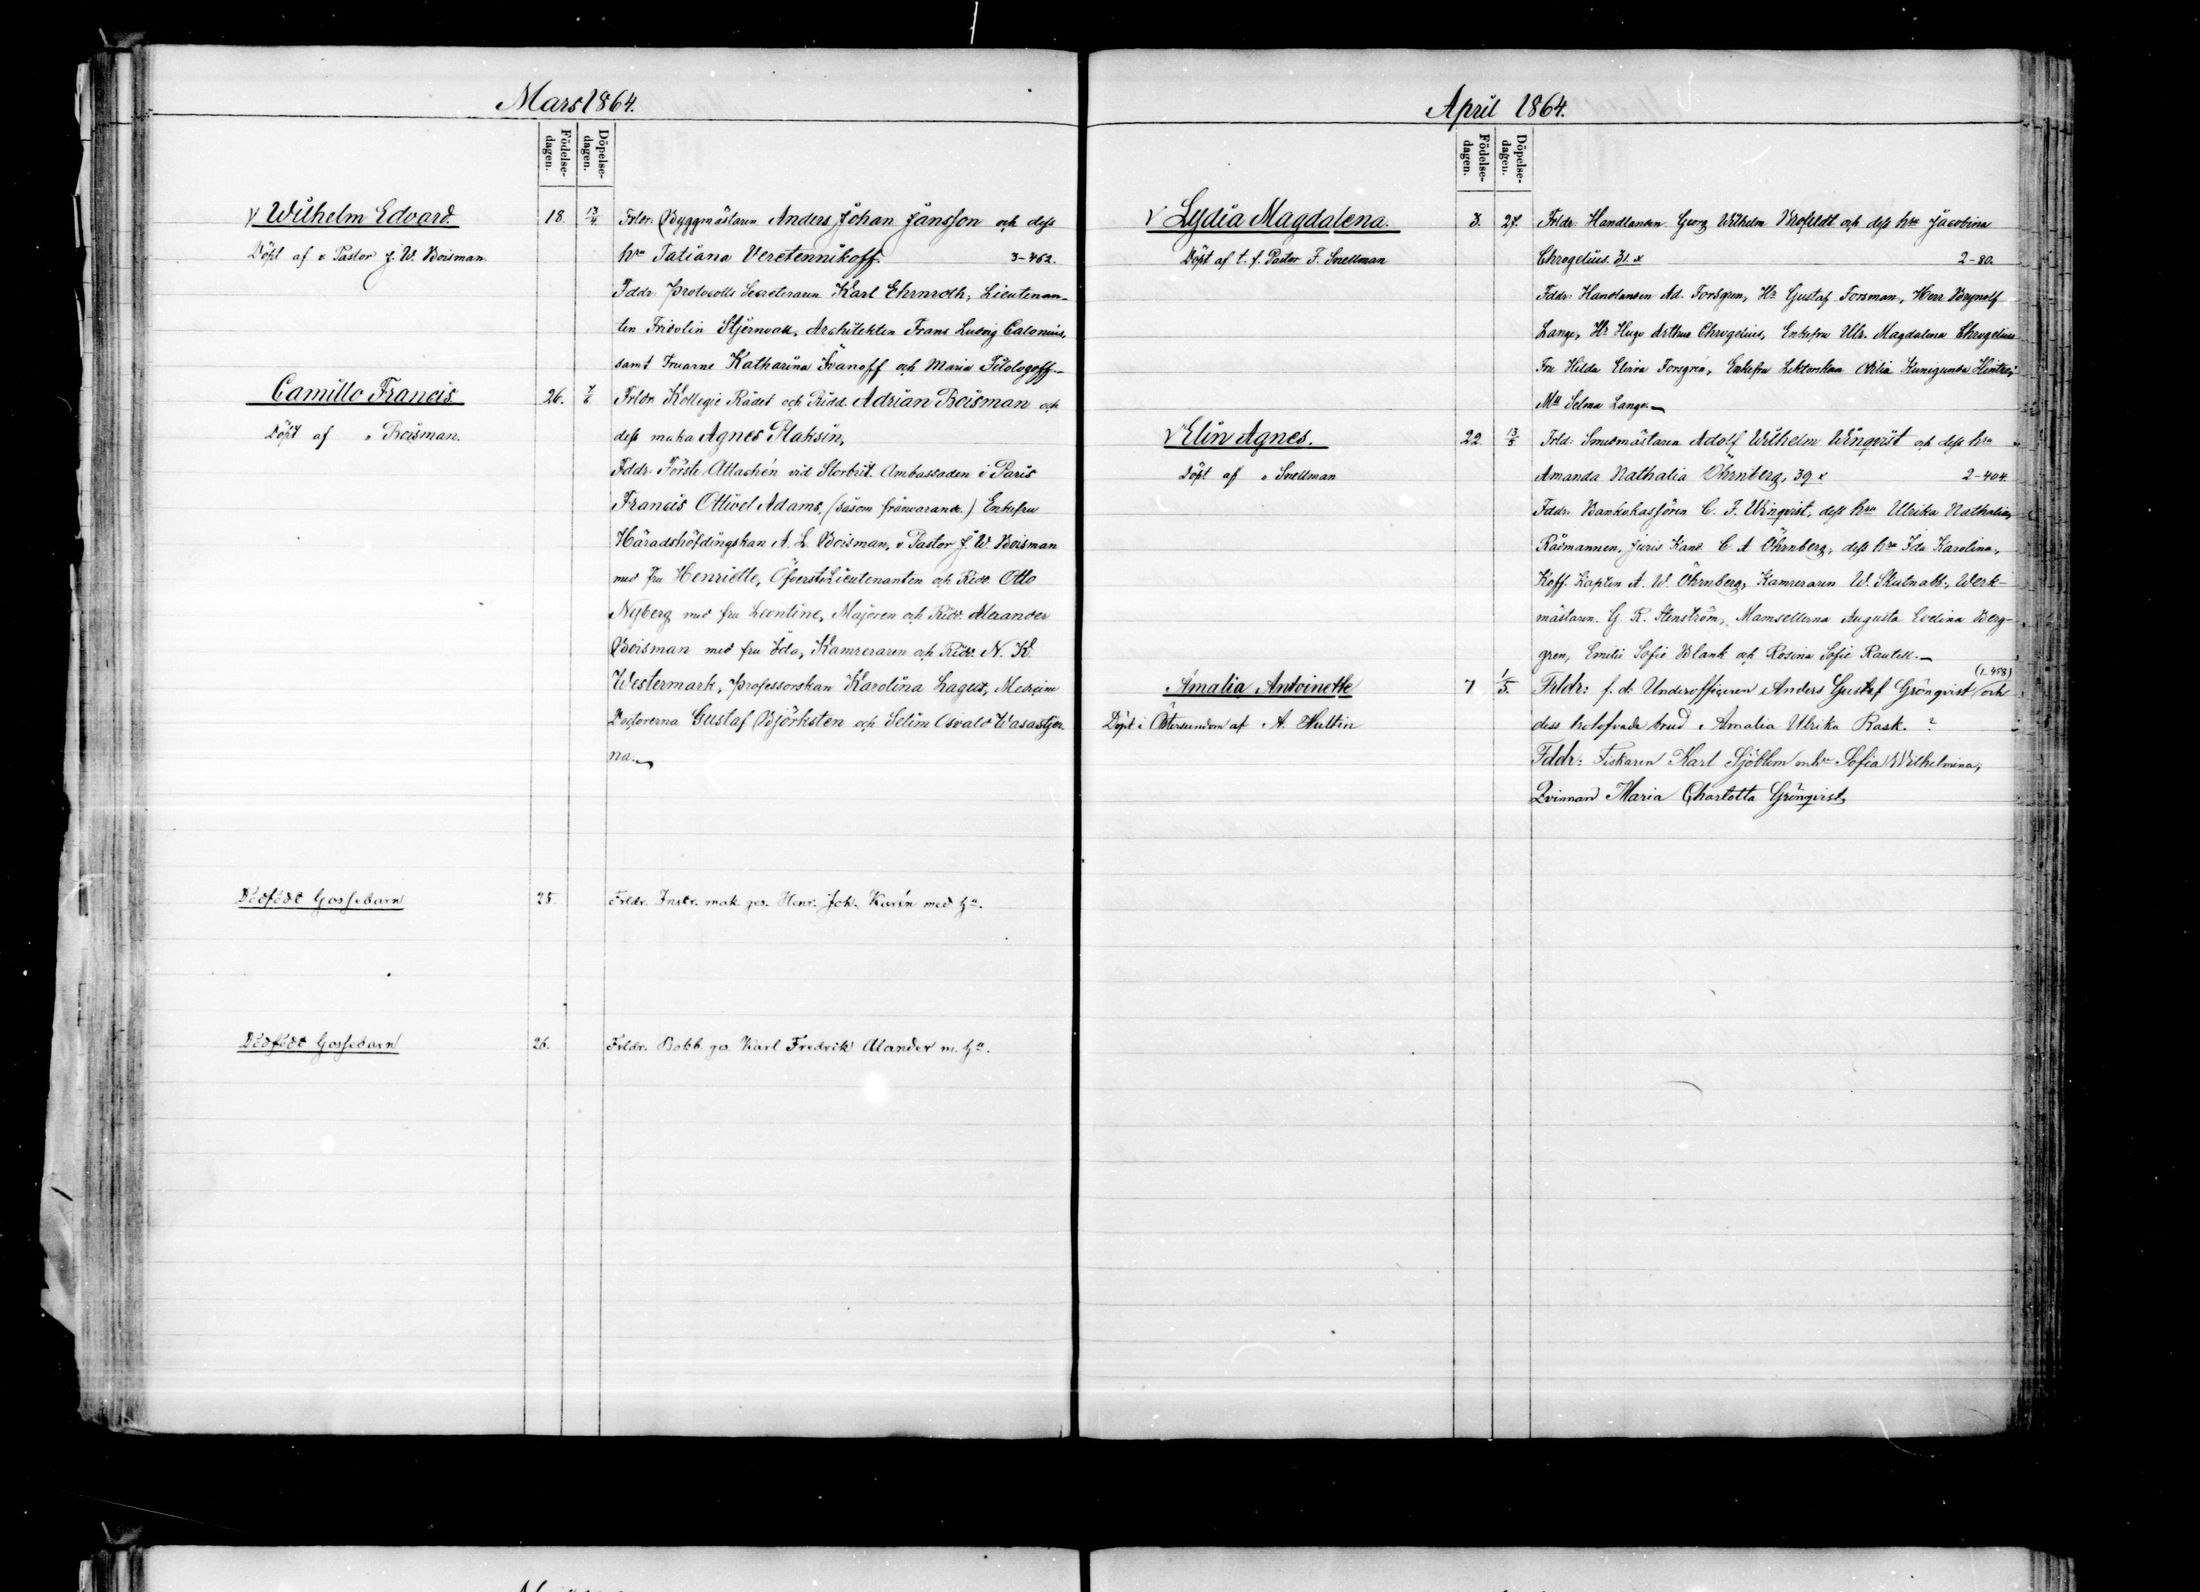 Mars 1864.
Födelse-
dagen.
Döpelse-
dagen.
v Wilhelm Edvard. 18. 13/4. Frldr. Byggmästaren Anders Johan Jansson och dess
Döpt af v Pastor J. W. Boisman. hru Tatiana Veretennikoff. 3-452.
Fddr. Protocolls Secreteraren Karl Ehrnroth, Lieutenan-
ten Fridolin Stjernvall, Architekten Frans Ludvig Calonius,
samt Fruarne Katharina Ivanoff och Maria Filologoff.
Camillo Francis 26. Frldr. Kollegie Rådet och Ridd. Adrian Boisman och
Döpt af " Boisman. dess maka Agnes Plaksin,
Fddr. Förste Attachén vid Storbrit. Ambassaden i Paris
Francis Ottivel Adams, (såsom frånvarande.) Enkefru
Häradshöfdingskan A. L. Boisman, v Pastor J. W. Boisman
med fru Henriette, ÖfversteLieutenanten och Ridd. Otto
Nyberg med fru Leontine, Majoren och Ridd. Alexander
Boisman med fru Ida, Kamreraren och Ridd. N. K.
Westermark, Professorskan Karolina Lagus, Medicine
Doctorerna Gustaf Björksten och Selim Osvald Wasastjer-
na.
Dödfödt Gossebarn 25 Frldr. Instr. mak. ges. Henr. Joh. Karén med hu.
Dödfödt Gossebarn 26. Frldr. Bokb. ges. Karl Fredrik Alander m. hu.
April 1864.
Födelse-
dagen.
Döpelse-
dagen.
v Lydia Magdalena. 3. 27. Frldr. Handlanden Georg Wilhelm Brofeldt och dess hru Jacobina
Döpt af t. f. Pastor F. Snellman Chrogelius. 31. x 2-80.
Fddr. Handlanden Ad. Forsgren, Hr Gustaf Forsman, Herr Brynolf
Lange, Hr Hugo Arthur Chrogelius, Enkefru Ulr. Magdalena Chrogelius
Fru Hilda Elvira Forsgren, Enkefru Lektorskan Otilia Kunigunda Hintze,
Mll Selma Lange.
v Elin Agnes. 22. 13/5 Frld: Smedmästaren Adolf Wilhelm Winqvist och dess hru
Döpt af " Snellman Amanda Nathalia Öhrnberg, 39 x 2-404.
Fddr. Bankokassören C. F. Winqvist, dess hru Ulrika Nathalia,
Rådmannen, Juris Kand. C. A Öhrnberg, dess hru Ida Karolina,
Koff. Kapten A. W. Öhrnberg, Kamreraren W. Skutnabb, Werk-
mästaren G. R. Stenström, Mamsellerna Augusta Evelina Berg-
gren, Emelie Sofie Blank och Rosina Sofie Rautell.
(1. 458)
Amalia Antoinette 7 1/5. Frldr: f. d. Underofficeren Anders Gustaf Grönqvist och
Döpt i Östersundom af A. Hultin dess trolofvade brud Amalia Ulrika Rask. ?
Fddr: Fiskaren Karl Sjöblom o hu Sofia Wilhelmina,
Qvinnan Maria Charlotta Grönqvist,